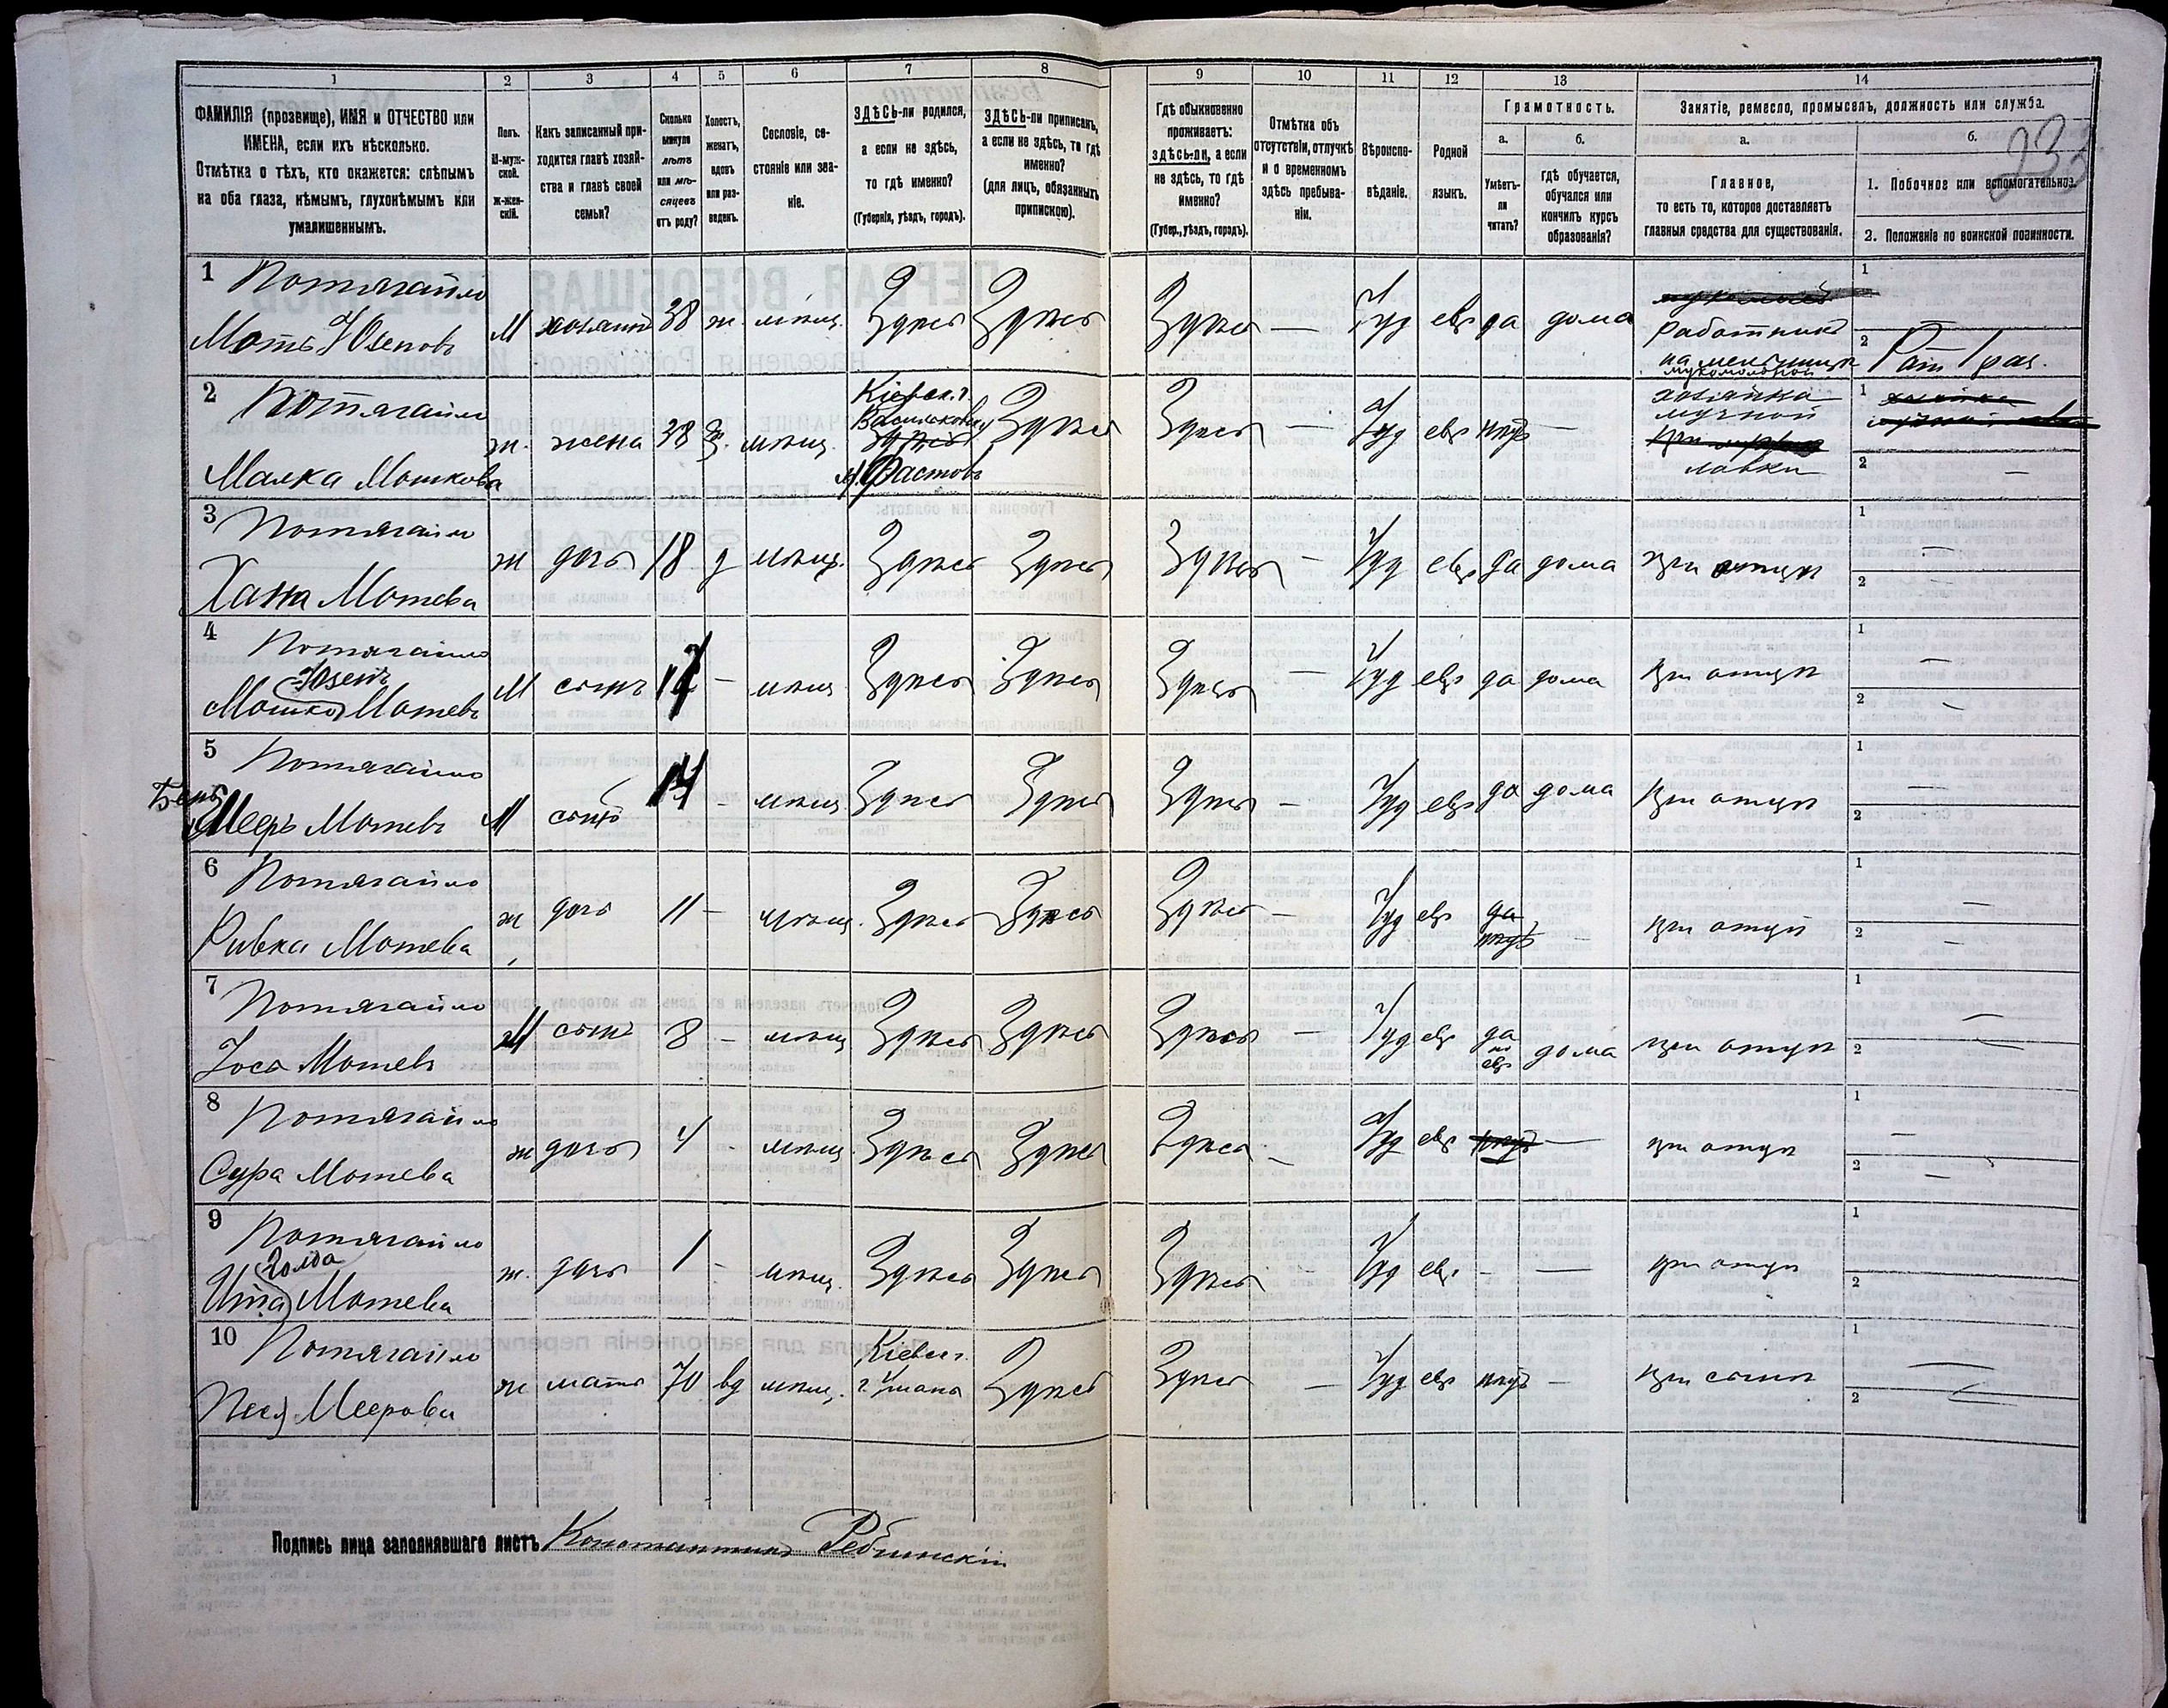 1 2 3 4 5 6 7 8 9 10 11 12 13 14
ФАМИЛІЯ (прозвище), ИМЯ и ОТЧЕСТВО или
ИМЕНА, если ихъ нѣсколько.
Отмѣтка о тѣхъ, кто окажется: слѣпымъ
на оба глаза, нѣмымъ, глухонѣмымъ или
умалишеннымъ.
Полъ.
М-муж-
ской.
ж-жен-
скій.
Какъ записанный при-
ходится главѣ хозяй-
ства и главѣ своей
семьи?
Сколько
минуло
лѣтъ
или мѣ-
сяцевъ
отъ роду?
Холостъ,
женатъ,
вдовъ
или раз-
веденъ.
Сословіе, со-
стояніе или зва-
ніе.
ЗДѢСЬ-ли родился,
а если не здѣсь,
то гдѣ именно?
(Губернія, уѣздъ, городъ).
ЗДѢСЬ-ли приписанъ,
а если не здѣсь, то гдѣ
именно?
(для лицъ, обязанныхъ
припискою).
Гдѣ обыкновенно
проживаетъ:
здѣсь-ли, а если
не здѣсь, то гдѣ
именно?
(Губер., уѣздъ, городъ).
Отмѣтка объ
отсутствіи, отлучкѣ
и о временномъ
здѣсь пребыва-
ніи.
Вѣроиспо-
вѣданіе.
Родной
языкъ.
Грамотность.
а.
Умѣетъ-
ли
читать?
б.
гдѣ обучается,
обучался или
кончилъ курсъ
образованія?
Занятіе, ремесло, промыселъ, должность или служба.
а.
Главное,
то есть то, которое доставляетъ
главныя средства для существованія.
б.
1. Побочное или вспомогательное.
2. Положеніе по воинской повинности.
233
1 Потягайло
Моть Юзеповъ М хозяинъ 38 ж. мѣщ. Здѣсь Здѣсь Здѣсь — Іуд евр да дома
работникъ
на мельницѣ
мукомольной
1
2 Рат 1 раз.
2 Потягайло
Малка Мошкова ж. жена 38 з. мѣщ.
Кіевск. г.
Васильков. у
здѣсь
м. Фастовъ
Здѣсь Здѣсь — Іуд евр нѣтъ —
хозяйка
мучной
лавки
1 хозяйка
2 —
3 Потягайло
Хана Мотева ж дочь 18 д мѣщ. Здѣсь Здѣсь Здѣсь — Іуд евр да дома при отцѣ
1 —
2 —
4 Потягайло
Юзепъ
Мошко Мотевъ М сынъ 17 — мѣщ Здѣсь Здѣсь Здѣсь — Іуд евр да дома при отцѣ
1 —
2 —
5 Потягайло
Беръ
Мееръ Мотевъ М сынъ 14 — мѣщ. Здѣсь Здѣсь Здѣсь — Іуд евр да дома при отцѣ
1 —
2 —
6 Потягайло
Ривка Мотева ж дочь 11 — мѣщ. Здѣсь Здѣсь Здѣсь — Іуд евр да
нѣтъ — при отцѣ
1 —
2 —
7 Потягайло
Іося Мотевъ М сынъ 8 — мѣщ Здѣсь Здѣсь Здѣсь — Іуд евр да
по
евр дома при отцѣ
1 —
2 —
8 Потягайло
Сура Мотева ж дочь 4 — мѣщ. Здѣсь Здѣсь Здѣсь — Іуд евр нѣтъ — при отцѣ
1 —
2 —
9 Потягайло
Голда
Ита Мотева ж. дочь 1 — мѣщ. Здѣсь Здѣсь Здѣсь — Іуд евр. — — при отцѣ
1
2
10 Потягайло
Песя Меерова ж мать 70 вд мѣщ.
Кіевск г.
г. Умань
Здѣсь Здѣсь — Іуд евр нѣтъ — при сынѣ
1 —
2 —
Подпись лица заполнявшаго листъ Константинъ Ребинскій